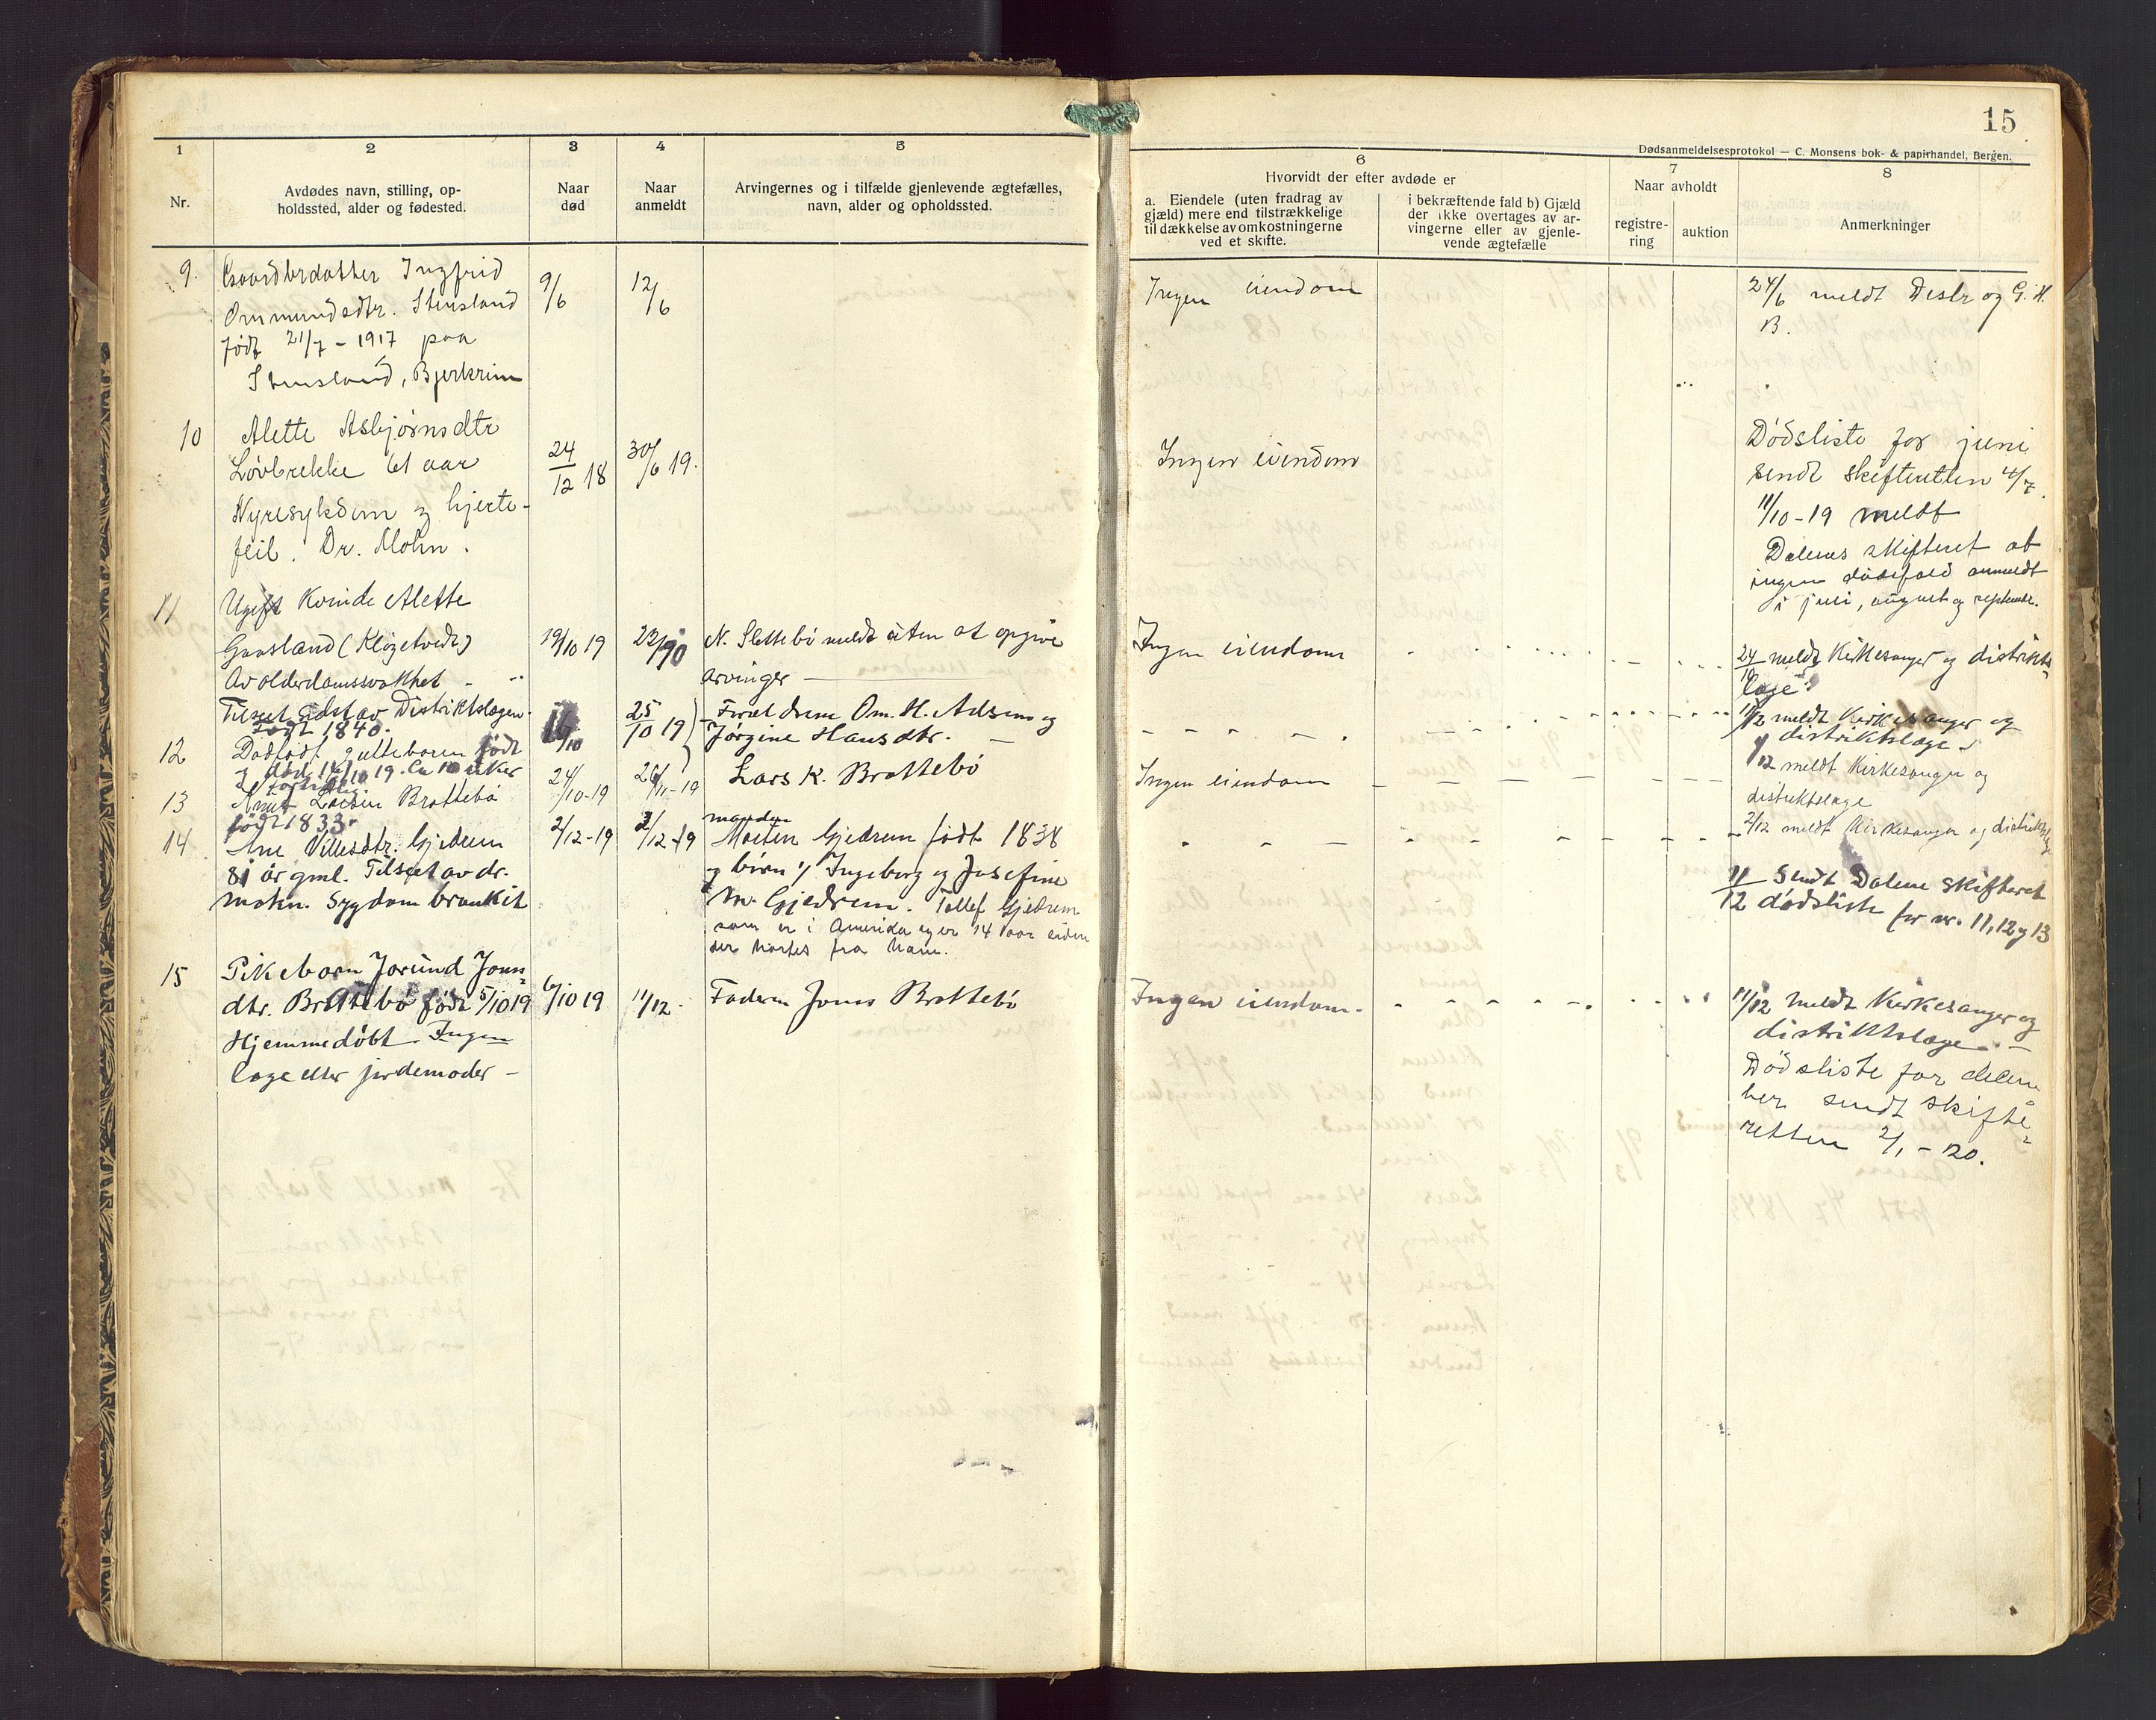 15
Dødsanmeldelsesprotokol — C. Monsens bok- & papirhandel, Bergen.
1
Nr.
2
Avdødes navn, stilling, op-
holdssted, alder og fødested.
3
Naar
død
4
Naar
anmeldt
5
Arvingernes og i tilfælde gjenlevende ægtefælles,
navn, alder og opholdssted.
6
Hvorvidt der efter avdøde er
a. Eiendele (uten fradrag av
gjæld) mere end tilstrækkelige
til dækkelse av omkostningerne
ved et skifte.
i bekræftende fald b) Gjæld
der ikke overtages av ar-
vingerne eller av gjenle-
vende ægtefælle
7
Naar avholdt
registre-
ring
auktion
8
Anmerkninger
9.
Gaardbrdatter Ingfrid
Ommundsdtr. Stensland
født 21/7 - 1917 paa
Stensland, Bjerkreim
9/6
12/6
Ingen eiendom
24/6 meldt Distr og G. H.
B.
10
Alette Asbjørnsdtr
Løvbrekke 61 aar
Nyresykdom og hjerte-
feil. Dr. Mohn.
24/12 18
30/6 19.
Ingen eiendom
Dødsliste for juni
sendt skifteretten 4/7.
11/10-19 meldt
Dalenes skifteret at
ingen dødsfald anmeldt
i juli, august og septembr.
11
Ugift Kvinde Alette
Gaasland (Kløgetvedt)
Av alderdomssvakhet -
Tilseet sidst av Distriktslægen
Født 1840.
19/10 19
23/10
N. Slettebø meldt uten at opgive
arvinger —
Ingen eiendom
24/10 meldt Kirkesanger og distrikts-
læge
12
Dødfødt gutteborn født
og død 16/10 19. Ca 10 uker
for tidlig.
16/10
25/10 19
Forældrene Om. H. Adsem og
Jørgine Hansdtr. —
11/12 meldt Kirkesanger og
distriktslæge
13
Larsine Brattebø
født 1833.
24/10-19
26/11-19
Lars K. Brattebø
Ingen eiendom
1/12 meldt Kirkesanger og
distriktslæge
14
Ane Villesdtr. Gjedrem
81 år gml. Tilseet av dr.
Mohn. Sygdom bronkit
2/12-19
2/12-19
manden
Morten Gjedrem født 1838
og børn 1/ Ingeborg og Josefine
M. Gjedrem. Tollef Gjedrem
som er i Amerika og er 14 aar siden
der hørtes fra ham.
2/12 meldt Kirkesanger og distriktslæge
11/12 Sendt Dalene skifteret
dødsliste for nr. 11, 12 og 13
15
Pikeborn Jorund Jons-
dtr. Brattebø født 5/10 19
Hjemmedøbt. Ingen
læge eller jordemoder -
6/10 19
11/12.
Faderen Jonas Brattebø
Ingen eiendom.
11/12 meldt Kirkesanger og
distriktslæge. —
Dødsliste for decem
ber sendt skifte-
retten 2/1 - 20.